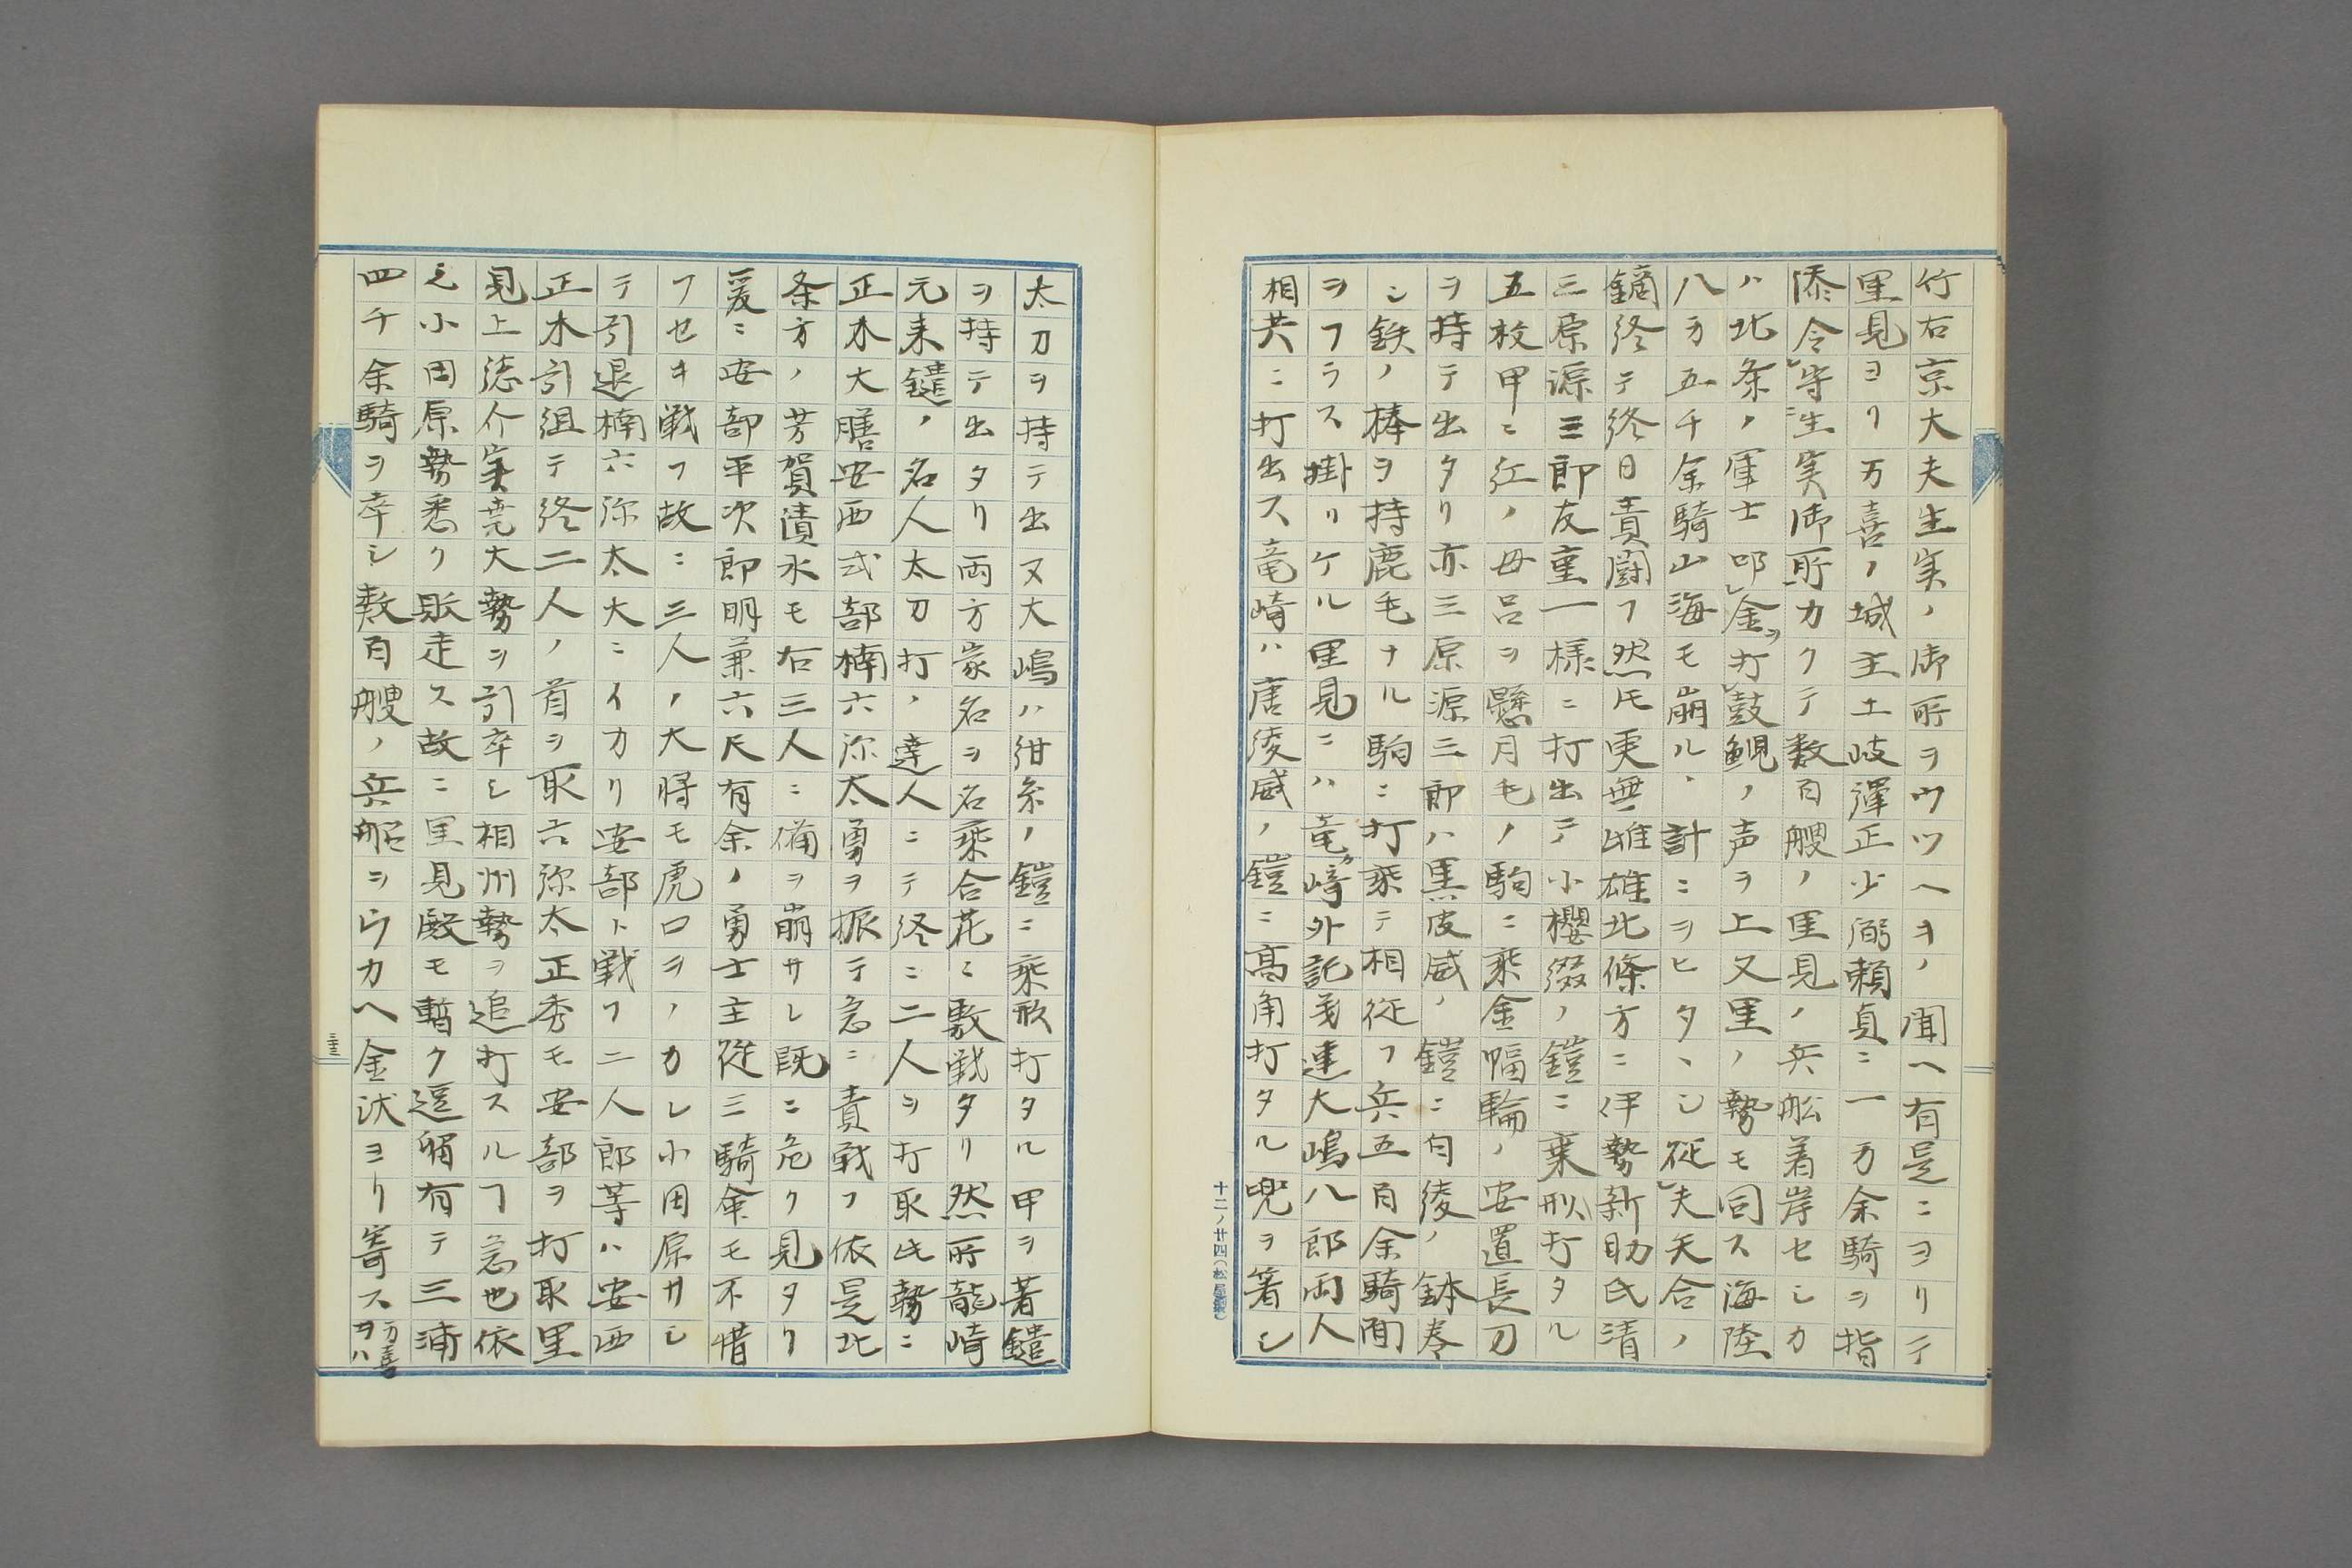 竹右京大夫生実ノ御所ヲウツヘキノ聞ヘ有是ニヨリテ
里見ヨリ万喜ノ城主土岐弾正少弼頼貞ニ一万余騎ヲ指
添令守生実御所カクテ数百艘ノ里見ノ兵舩着岸セシカ
ハ北条ノ軍士叩金ヲ打鼓鯢ノ声ヲ上又里ノ勢モ同ス海陸
八万五千余騎山海モ崩ルヽ計ニヲヒタヽシ従夫矢合ノ
鏑終テ終日責闘フ然圧更無雌雄北條方ニ伊勢新助氏清
三原源三郎友重一様ニ打出テ小櫻綴ノ鎧ニ乗形打タル
五枚甲ニ江ノ母呂ヲ懸月毛ノ駒ニ乗金幅輪ノ安置長刀
ヲ持テ出タリ亦三原源三郎ハ黒皮威ノ鎧ニ白綾ノ鉢巻
シ鉄ノ棒ヲ持鹿毛ナル駒ニ打乗テ相従フ兵五百余騎面
ヲフラス掛リケル里見ニハ竜崎外記茂連大嶋八郎両人
相共ニ打出ス竜崎ハ唐綾威ノ鎧ニ高角打タル兜ヲ箸シ
十二ノ廿四(松屋製)
太刀ヲ持テ出又大嶋ハ紺糸ノ鎧ニ乘形打タル甲ヲ著鑓
ヲ持テ出タリ両方家名ヲ名乗合花ニ敷戦タリ然所龍崎
元来鑓ノ名人太刀打ノ達人ニテ終ニ二人ヲ打取此勢ニ
正木大膳安西式部楠六弥太勇ヲ振テ急ニ責戦フ依是北
条方ノ芳賀清水モ右三人ニ備ヲ崩サレ既ニ危ク見タリ
爰ニ安部平次郎明兼六尺有余ノ勇士主従三騎命モ不惜
フセキ戦フ故ニ三人ノ大将モ虎口ヲノカレ小田原サシ
テ引退楠六弥太大ニイカリ安部ト戦フ二人郎等ハ安西
正木引組テ終二人ノ首ヲ取六弥太正秀モ安部ヲ打取里
見上総介実尭大勢ヲ引卒シ相州勢ヲ追打スルフ急也依
之小田原勢悉ク敗走ス故ニ里見殿モ暫ク逗留有テ三浦
四千余騎ヲ卒シ数百艘ノ兵船ヲウカヘ金沢ヨリ寄ス万喜ヲハ